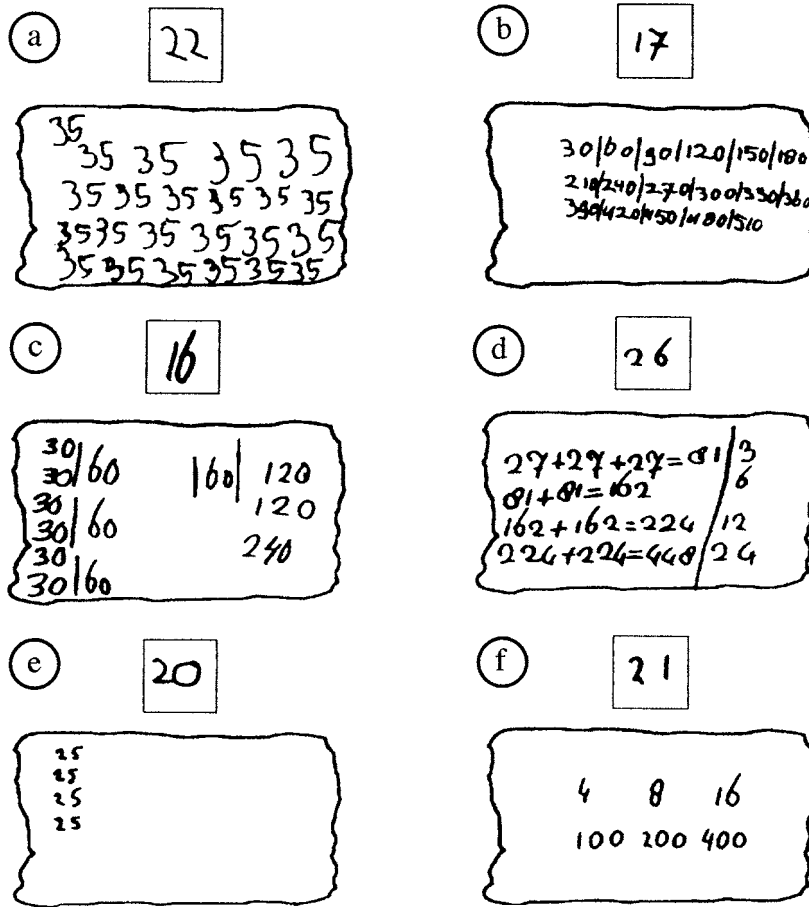 a
22
35
35 35 35 35
35 35 35 35 35 35
35 35 35 35 35 35
35 35 35 35 35 35
b
17
30/60/90/120/150/180
210/240/270/300/330/360
390/420/450/480/510
c
16
30
30|60
30
30|60
30
30|60
160| 120
120
240
d
26
27+27+27=81 3
81+81=162 6
162+162=224 12
224+224=448 24
e
20
25
25
25
25
f
21
4 8 16
100 200 400